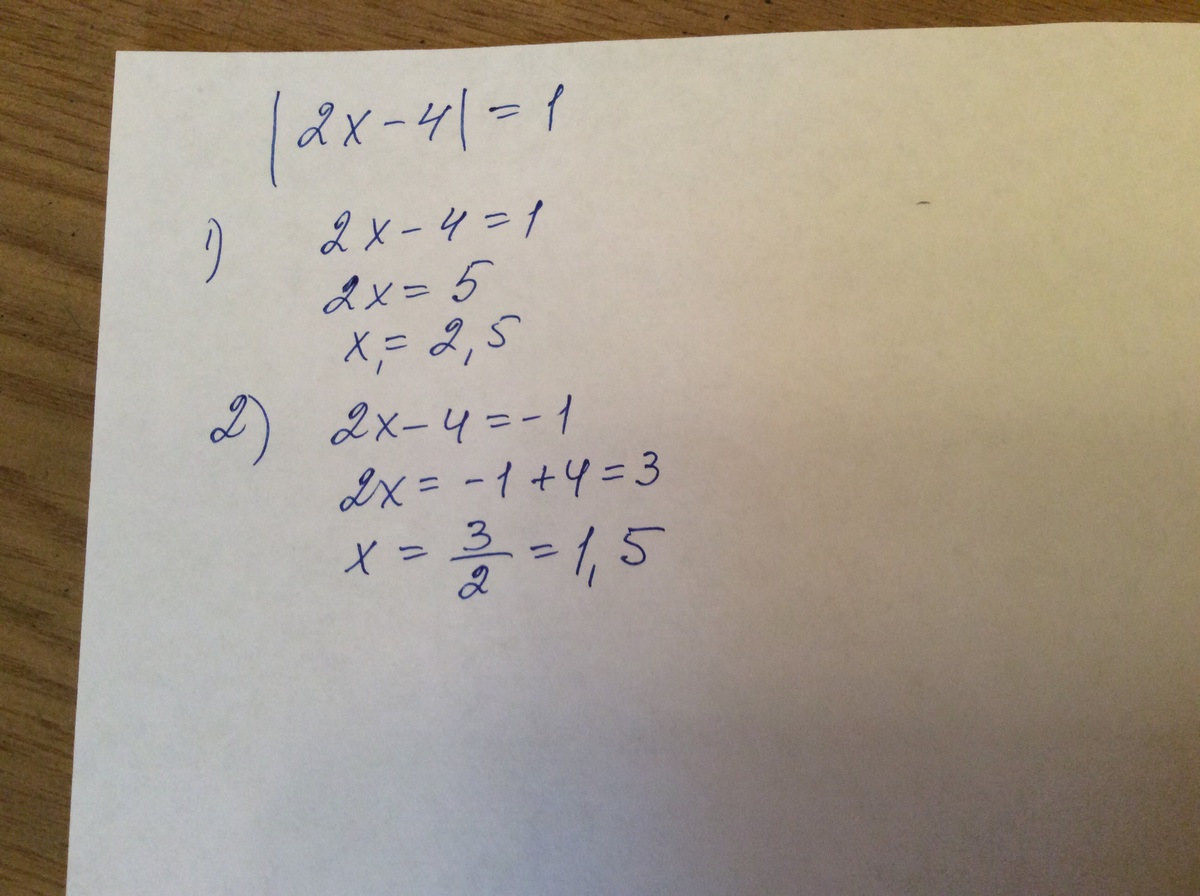 |2x-4| = 1
1) 2x-4=1
2x=5
x₁=2,5
2) 2x-4=-1
2x=-1+4=3
x=3/2=1,5